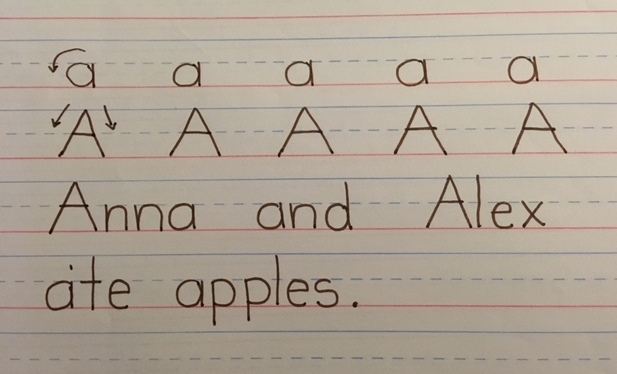 a a a a a
A A A A A
Anna and Alex
ate apples.